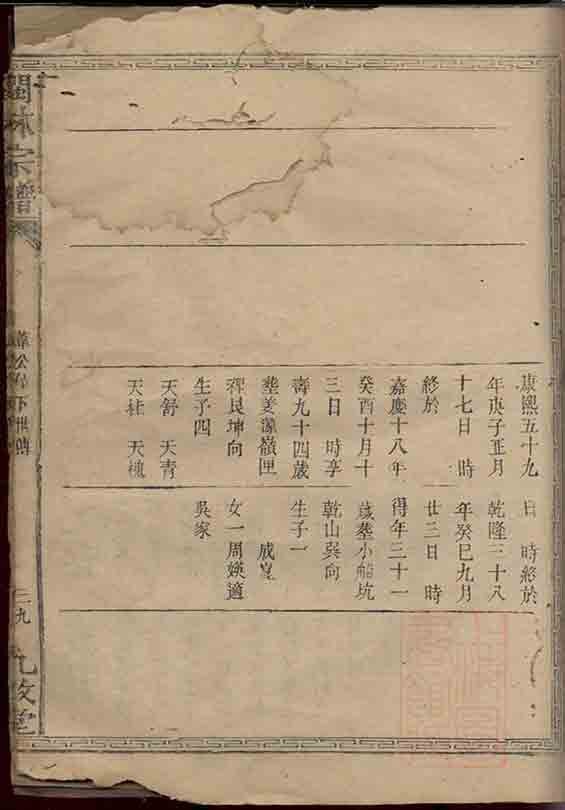 康熙五十九
年庚子正月
十七日 時
終於
嘉慶十八年
癸酉十月十
三日 時享
壽九十四歳
塟姜源嶺匣
裡艮坤向
生子四
天舒 天青
天柱 天槐
日 時終於
乾隆三十八
年癸巳九月
廿三日 時
得年三十一
歳塟小船坑
乾山巽向
生子一
女一周媖適
吳家
林宗譜
公 下世
二九